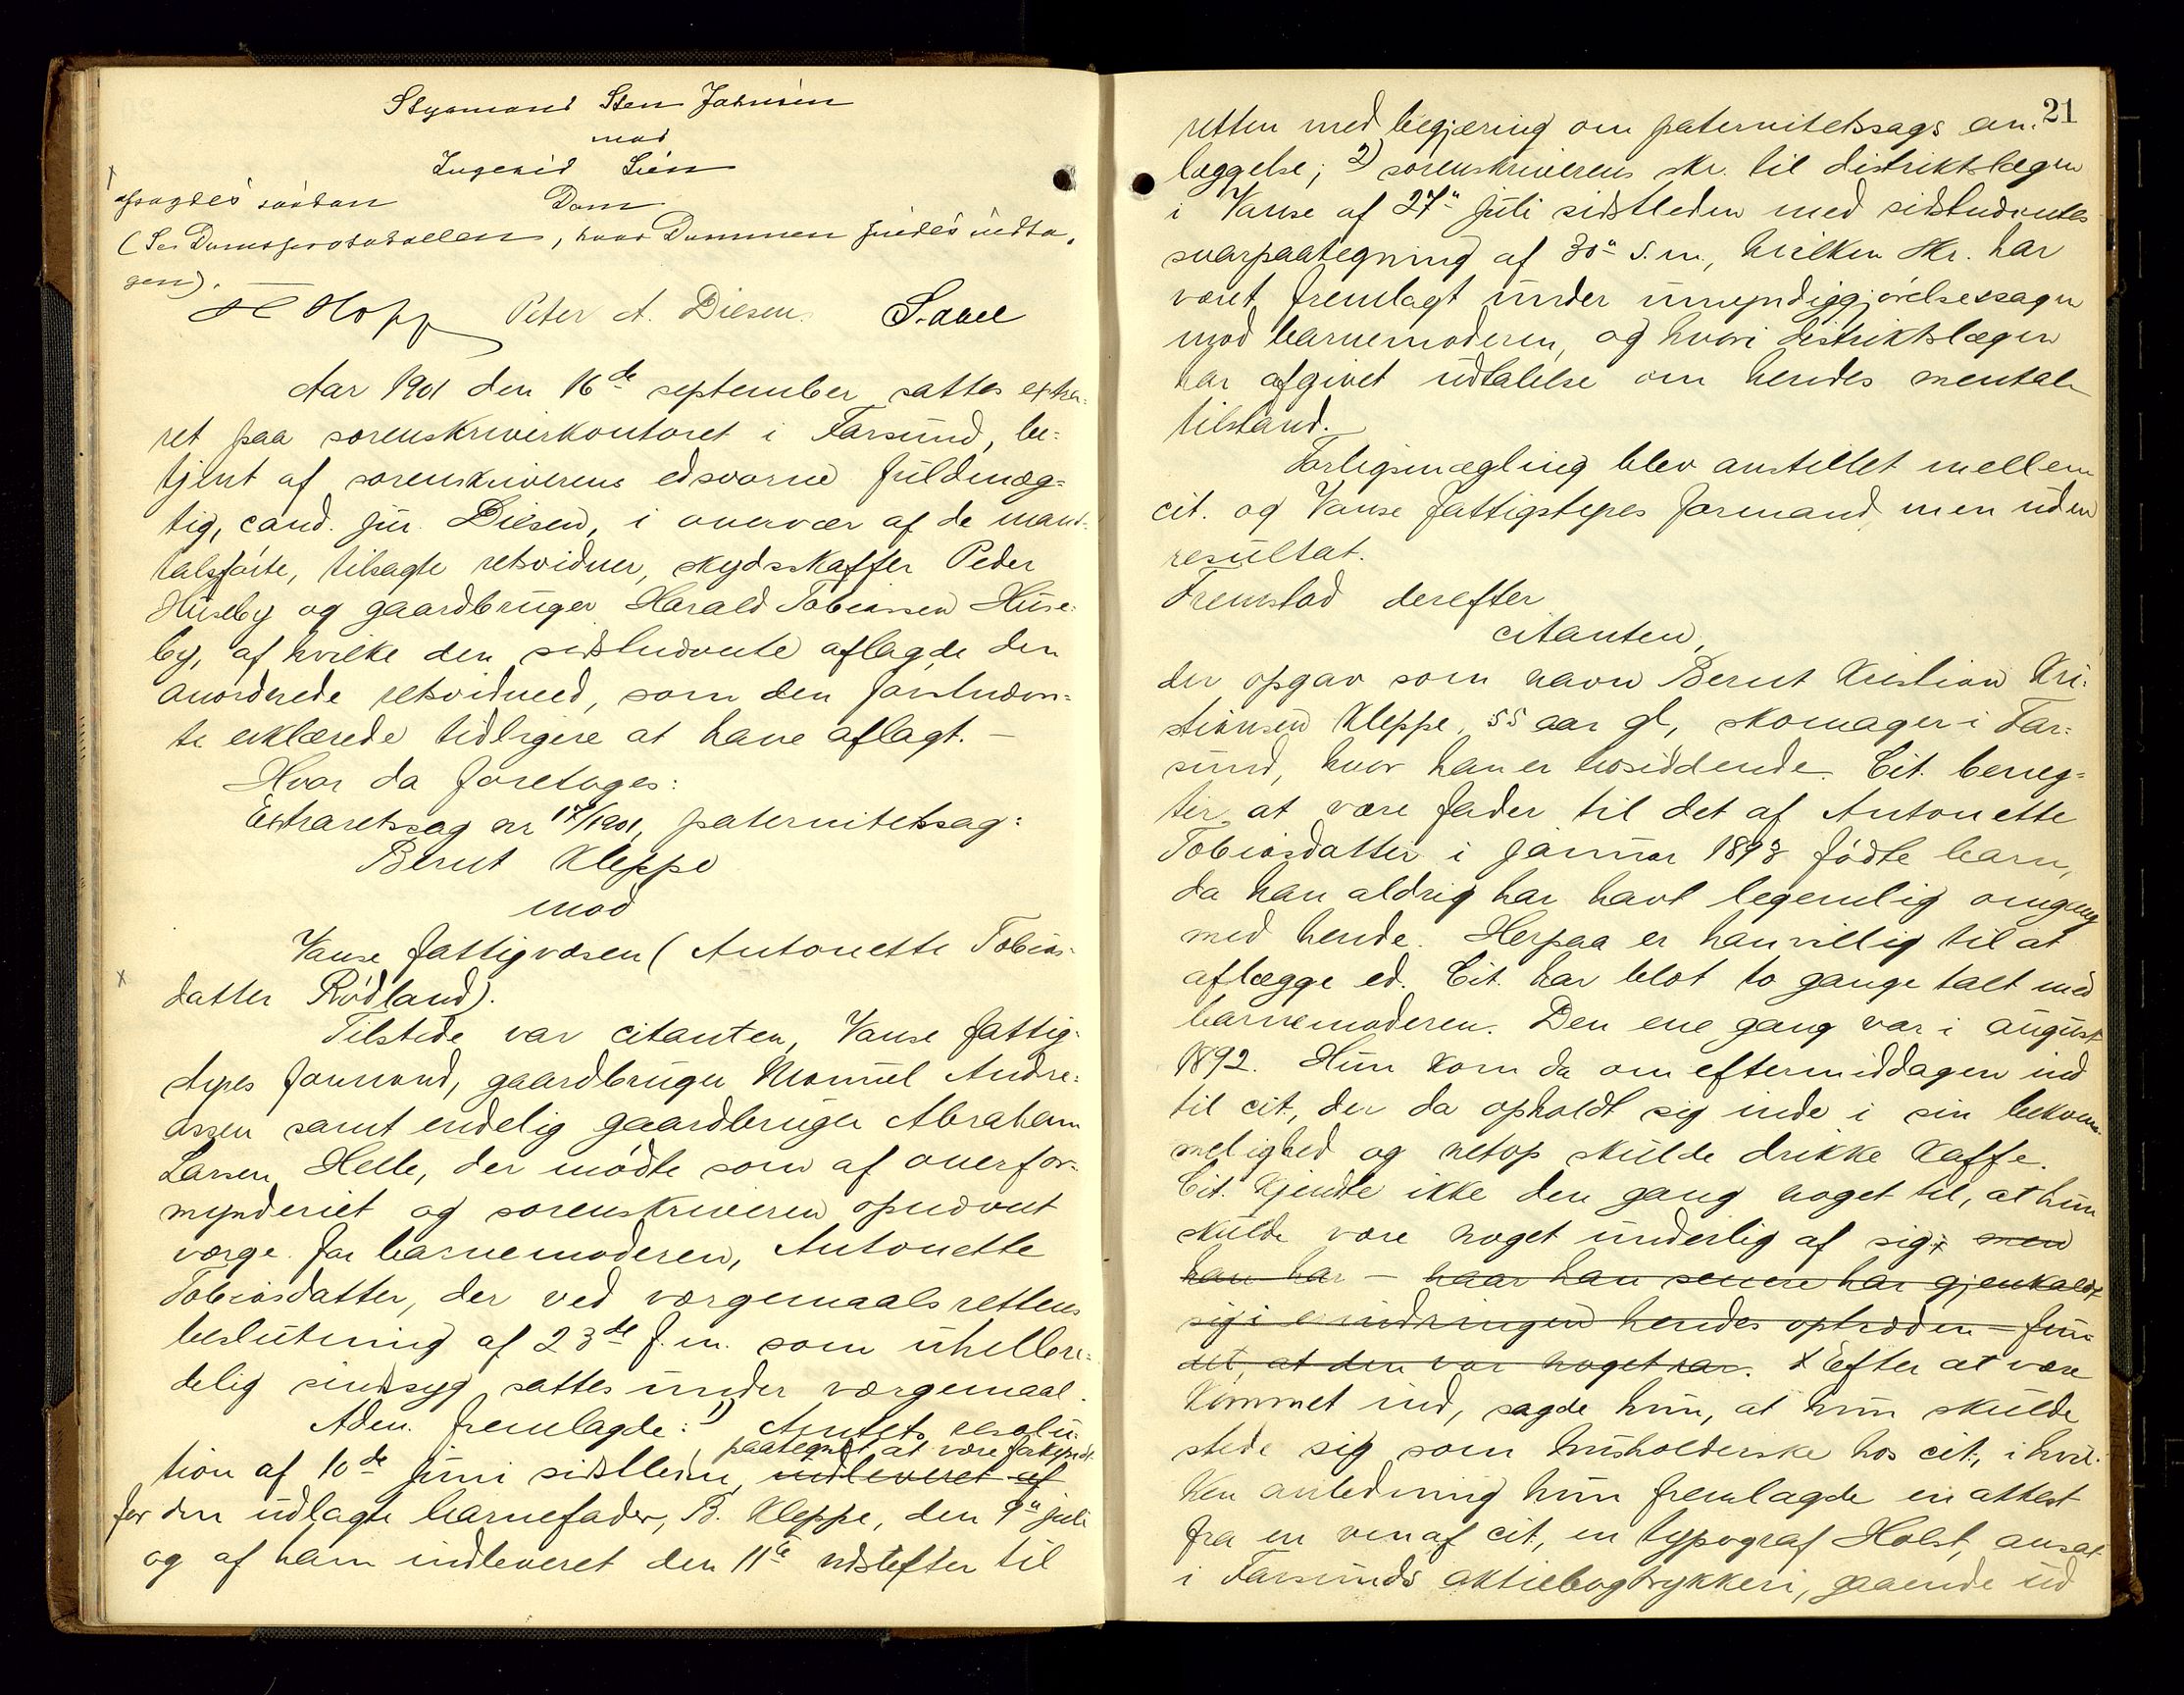 Styrmand Sten Jahnsen
mod
Ingerid Lien
afsagdes saadan Dom
(Se Domsprotokollen, hvor Dommen findes indta-
gen). —
H Hopp Peter A. Diesen
Aar 1901 den 16de september sattes extra-
ret paa sorenskriverkontoret i Farsund, be-
tjent af sorenskriverens edsvorne fuldmæg-
tig, cand. jur. Diesen, i overvær af de mand-
talsførte, tilsagte retsvidner, skydsskaffer Peder
Huseby og gaardbruger Harald Tobiassen Huse-
by, af hvilke den sidstnævnte aflagde den
anordnede retsvidneed, som den førstnævn-
te erklærede tidligere at have aflagt. —
Hvor da foretoges:
Extraretssag nr 17/1901, paternitetssag:
Bernt Kleppe
mod
Vanse fattigvæsen (Antonette Tobias-
x datter Rødland).
Tilstede var citanten, Vanse fattig-
styres formand, gaardbruger Manuel Andre-
assen samt endelig gaardbruger Abraham
Larsen Helle, der mødte som af overfor-
mynderiet og sorenskriveren opnævnt
værge for barnemoderen, Antonette
Tobiasdatter, der ved værgemaalsrettens
beslutning af 23de f. m. som uhelbre-
delig sindssyg sattes under værgemaal.
Adm. fremlagde: 1) Amtets resolu-
paategnet at være forkyndt
tion af 10de juni sidstleden, indleveret af
for den udlagte barnefader, B. Kleppe, den 9de juli
og af ham indleveret den 11te næstefter til
21
retten med begjæring om paternitetssags an-
læggelse; 2) sorenskriverens skr. til distriktslægen
i Vanse af 27de juli sidstleden med sidstnævntes
svarpaategning af 30te s. m., hvilken skr. har
været fremlagt under umyndiggjørelsessagen
mod barnemoderen, og hvori distriktslægen
har afgivet udtalelse om hendes mentale
tilstand.
Forligsmægling blev anstillet mellem
cit. og Vanse fattigstyres formand, men uden
resultat.
Fremstod derefter
citanten,
der opgav som navn Bernt Kristian Kri-
stiansen Kleppe, 55 aar gl., skomager i Far-
sund, hvor han er bosiddende. Cit. beneg-
ter at være fader til det af Antonette
Tobiasdatter i januar 1893 fødte barn,
da han aldrig har havt legemlig omgang
med hende. Herpaa er han villig til at
aflægge ed. Cit. har blot to gange talt med
barnemoderen. Den ene gang var i august
1892. Hun kom da om eftermiddagen ind
til cit., der da opholdt sig inde i sin bekvem-
melighed og netop skulde drikke kaffe.
Cit. kjendte ikke den gang noget til, at hun
skulde være noget underlig af sig; x men
han har — naar han senere har gjenkaldt
sig i erindringen hendes optræden — fun-
det, at den var noget rar. x Efter at være
kommet ind, sagde hun, at hun skulde
stede sig som husholderske hos cit., i hvil-
ken anledning hun fremlagde en attest
fra en ven af cit., en typograf Holst, ansat
i Farsunds aktiebogtrykkeri, gaaende ud